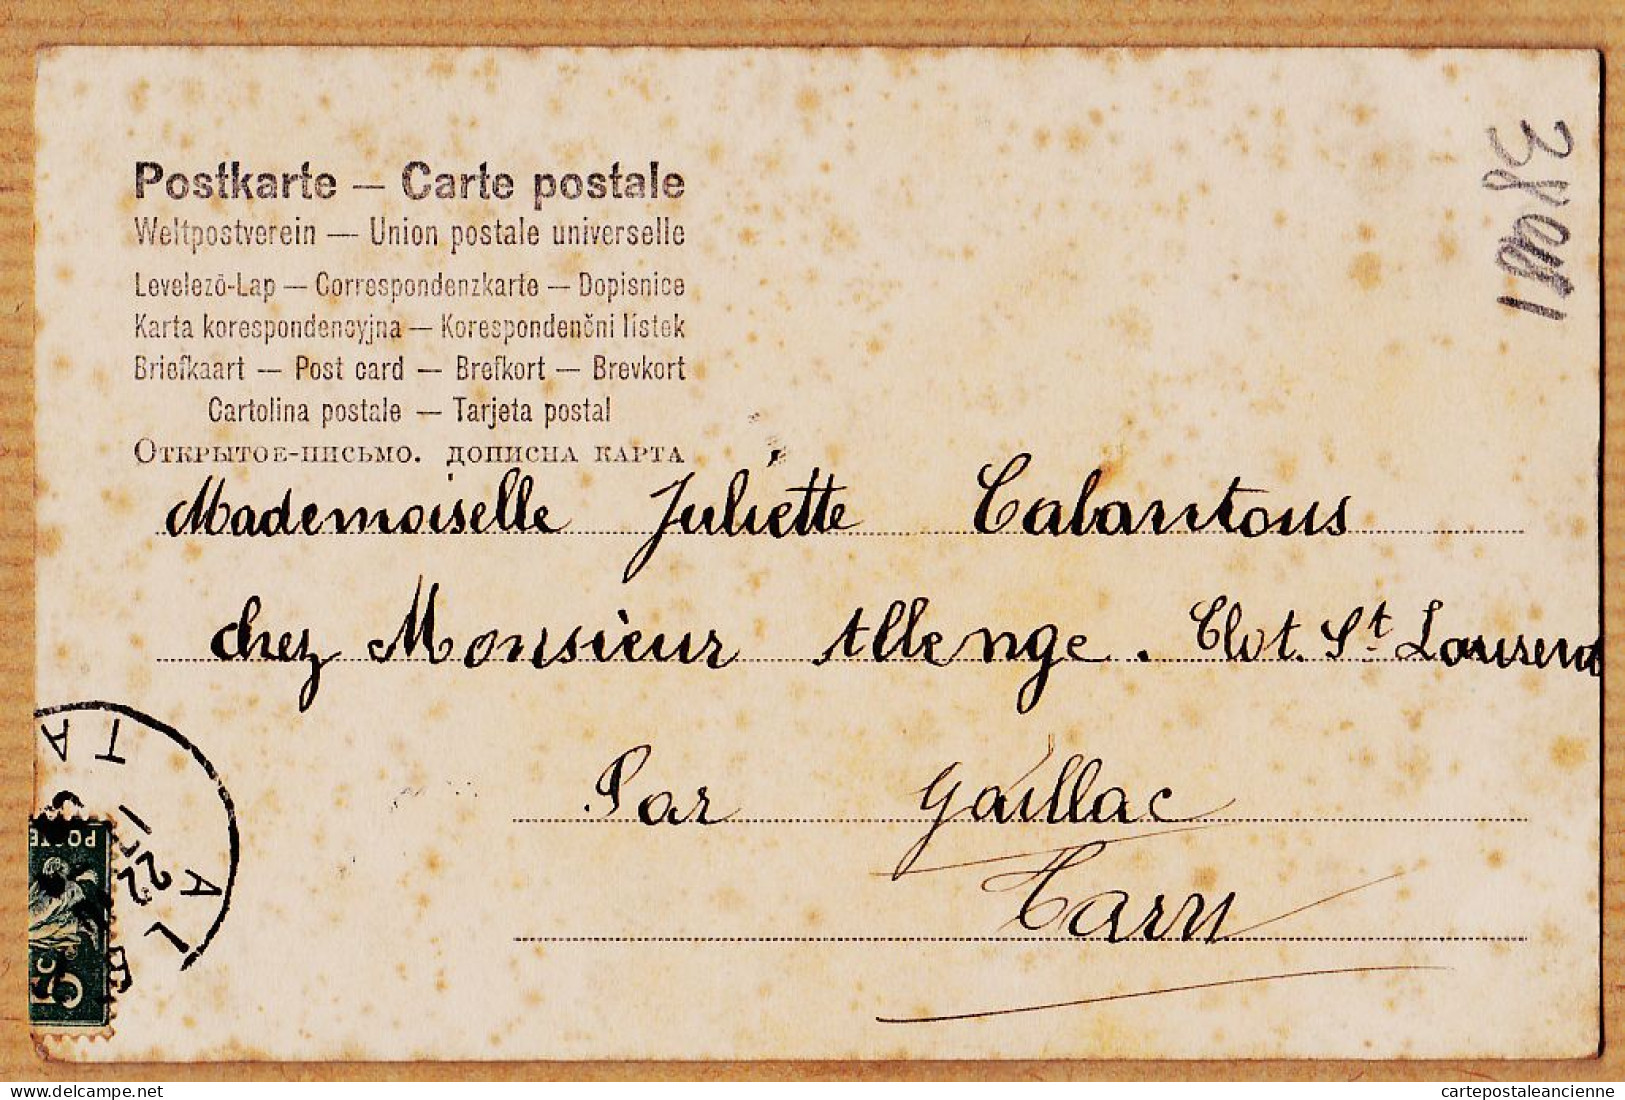 Postkarte — Carte postale
Weltpostverein — Union postale universelle
Levelező-Lap — Correspondenzkarte — Dopisnice
Karta korespondencyjna — Korespondenčni lístek
Briefkaart — Post card — Brefkort — Brevkort
Cartolina postale — Tarjeta postal
Открытое-письмо. дописна карта
Mademoiselle Juliette Cabantous
chez Monsieur Allenge. Clot. St Laurent
Par Gaillac
Tarn
TA
22
AL
POSTE
5c
cartepostaleancienne